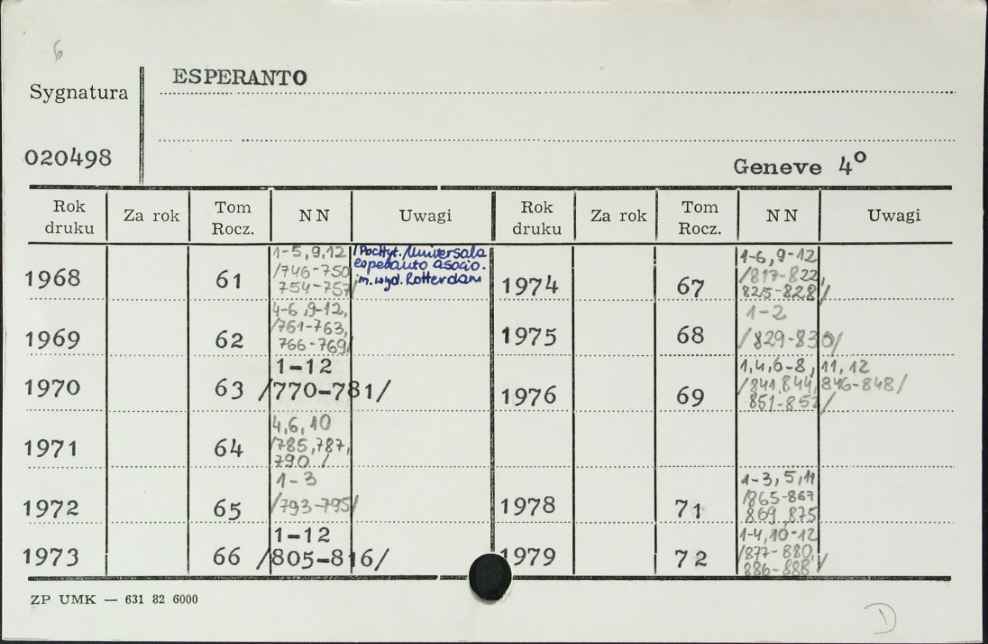 6
ESPERANTO
Sygnatura
020498
Geneve 4°
Rok druku Za rok Tom Rocz. NN Uwagi Rok druku Za rok Tom Rocz. NN Uwagi
1968 61 1-5,9,12
/746-750
754-757/
/Pocztyt./Universala
esperanto asocio.
m.wyd. Rotterdam
1969 62 4-6,9-12,
/761-763,
766-769/
1970 63 1-12
/770-781/
1971 64 4,6,10
/785,787,
790/
1972 65 1-3
/793-795/
1973 66 1-12
/805-816/
1974 67 1-6,9-12
/817-822,
825-828/
1975 68 1-2
/829-830/
1976 69 1,4,6-8,11,12
/841,844,846-848/
851-852/
1978 71 1-3,5,11
/865-867
869,875
1979 72 1-4,10-12
/877-880,
886-888/
ZP UMK — 631 82 6000
D